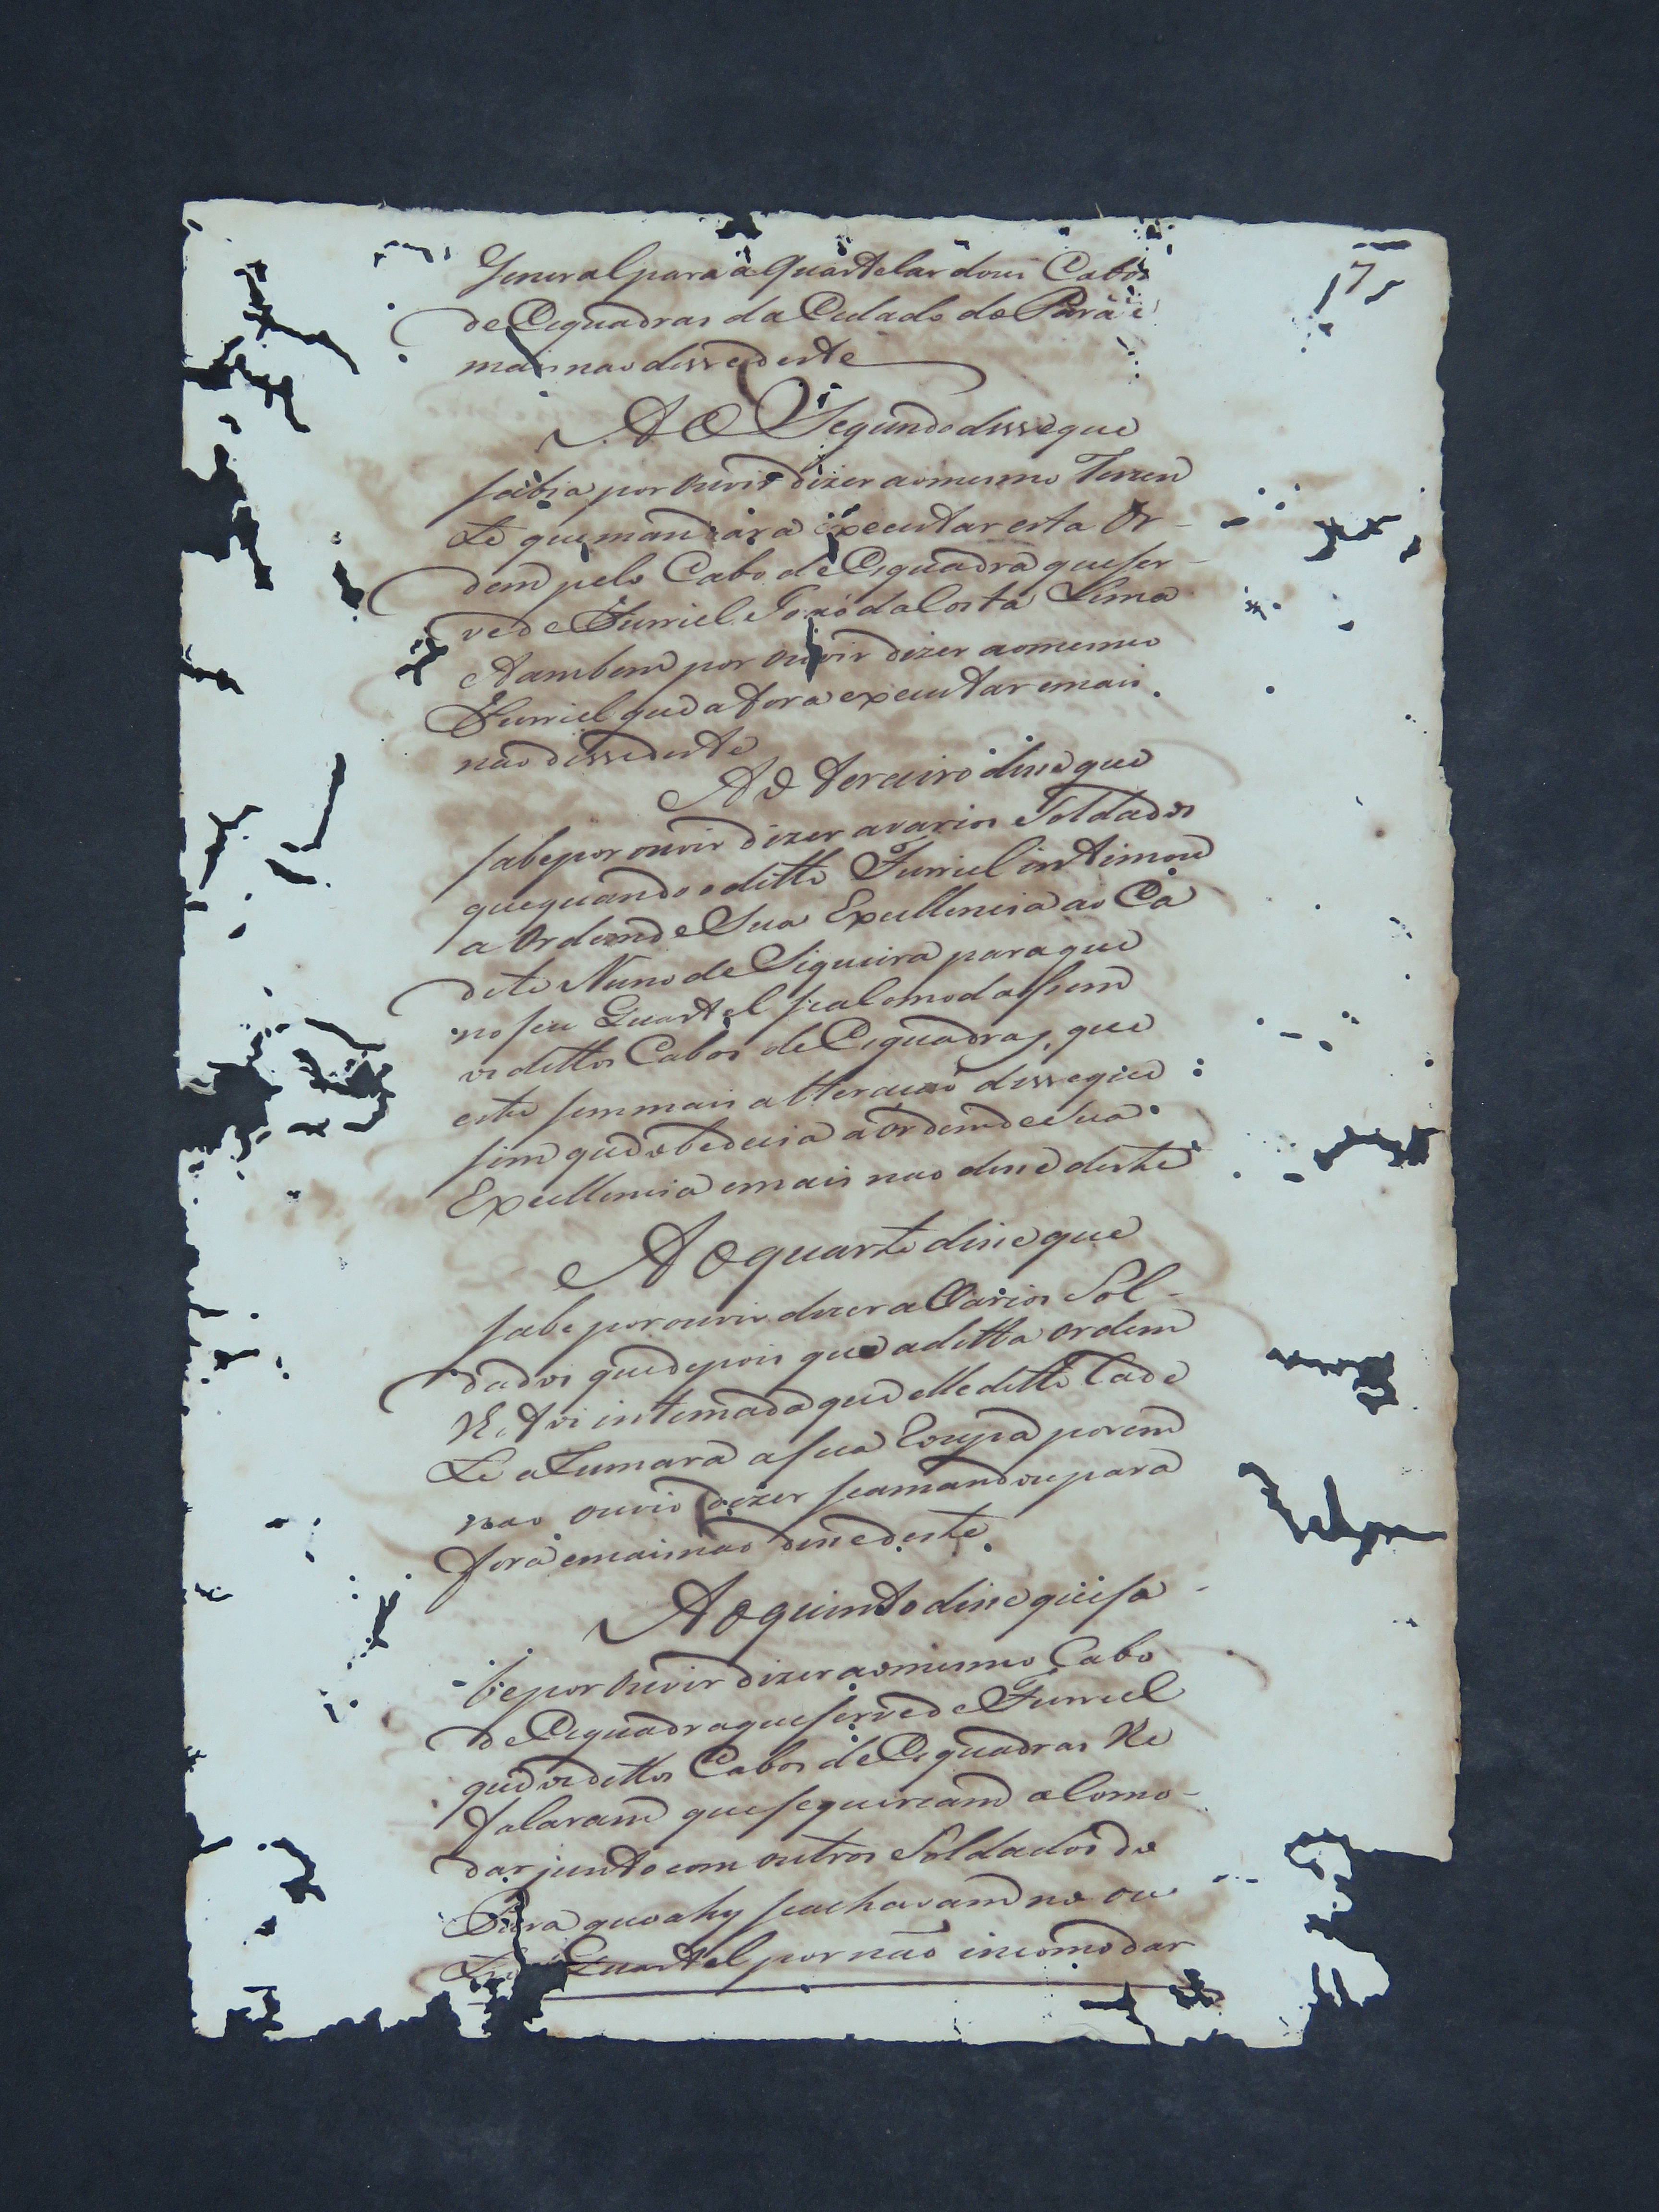 17
General para a quartelar dous Cabos
de Esquadras da Cidade do Pará e
mais nao disse deste
Ao Segundo disse que
sabia por ouvir dizer ao mesmo Tenen
te que mandára executar esta Or-
dem pelo Cabo de Esquadra que ser-
ve de Furriel João da Costa Lima
e tambem por ouvir dizer ao mesmo
Furriel que a fora executar e mais
não disse deste
Ao terceiro disse que
sabe por ouvir dizer a varios Soldados
que quando o ditto Furriel intimou
a Ordem de Sua Excellencia ao Ca
dete Nuno de Siqueira para que
no seu Quartel se alomodassem
os dittos Cabos de Esquadras, que
este sem mais alteração disse que
sim que obedecia a Ordem de Sua
Excellencia e mais nao disse deste
Ao quarto disse que
sabe por ouvir dizer a Varios Sol-
dados que depois que a ditta ordem
lhe foi intimada que elle ditto Cade
te a Rumara a sua Roupa porem
nao ouvio dizer se a mandou para
fora e mais nao disse deste.
Ao quinto disse que sa-
be por ouvir dizer ao mesmo Cabo
de Esquadra que serve de Furriel
que os dittos Cabos de Esquadras lhe
falaram que se queriam alomo-
dar junto com outros Soldados do
Pará que ahy se achavam no ou
tro Quartel por não incomodar